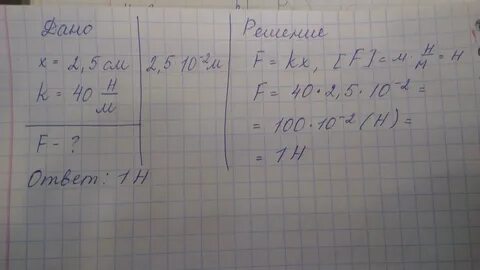 Дано
x = 2,5 см | 2,5 10⁻² м
k = 40 Н/м
F - ?
Ответ: 1 Н
Решение
F = kx, [F] = м · Н/м = Н
F = 40 · 2,5 · 10⁻² =
= 100 · 10⁻² (Н) =
= 1 Н